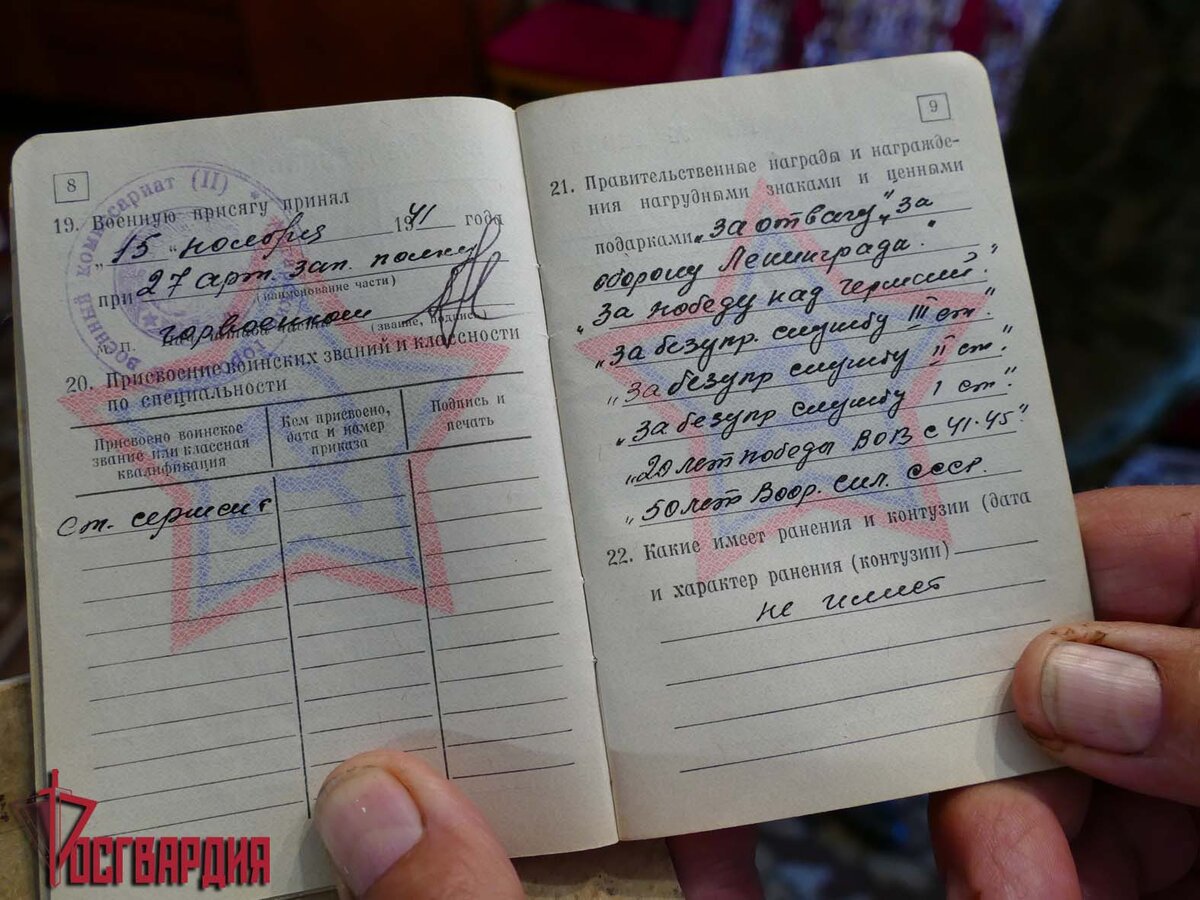 8
19. Военную присягу принял
„ 15 " ноября 1941 года
при 27 арт. зап. полку
(наименование части)
горвоенком
М. П. (звание, подпись
20. Присвоение воинских званий и классности
по специальности
Присвоено воинское
звание или классная
квалификация
Кем присвоено,
дата и номер
приказа
Подпись и
печать
Ст. сержант
ВОЕННЫЙ комиссариат (II)
9
21. Правительственные награды и награжде-
ния нагрудными знаками и ценными
подарками „За отвагу", „За
оборону Ленинграда."
„За победу над германий."
„За безупр. службу III ст."
„За безупр службу II ст."
„За безупр службу 1 ст."
„20 лет победы ВОВ с 41-45"
„50 лет Воор. Сил. СССР.
22. Какие имеет ранения и контузии (дата
и характер ранения (контузии)
не имеет
РОСГВАРДИЯ